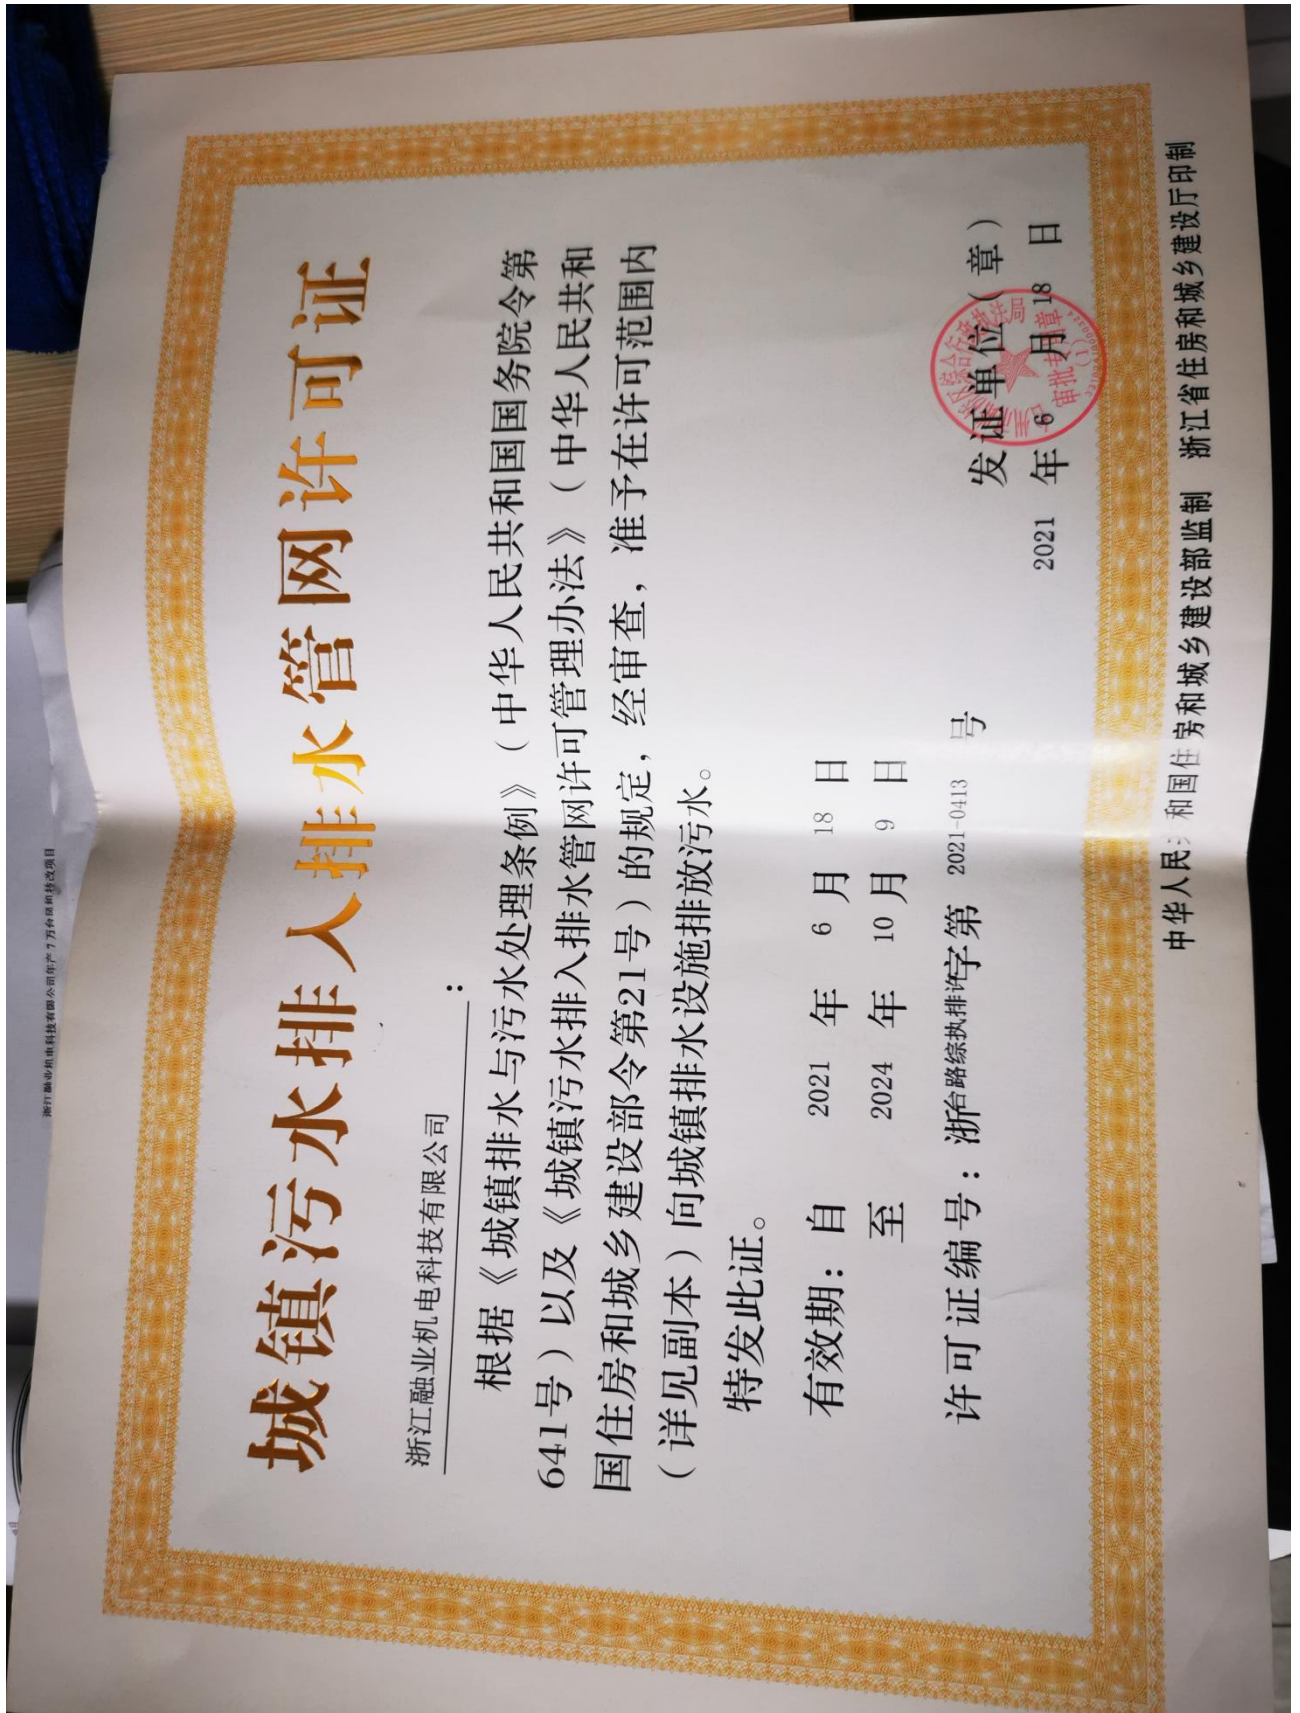 浙江融业机电科技有限公司年产7万台缝纫机技改项目
城镇污水排入排水管网许可证
浙江融业机电科技有限公司:
根据《城镇排水与污水处理条例》(中华人民共和国国务院令第
641号)以及《城镇污水排入排水管网许可管理办法》(中华人民共和
国住房和城乡建设部令第21号)的规定,经审查,准予在许可范围内
(详见副本)向城镇排水设施排放污水。
特发此证。
有效期:自 2021 年 6 月 18 日
至 2024 年 10 月 9 日
许可证编号:浙台路综执排许字第 2021-0413 号
发证单位(章)
2021 年 6 月 18 日
综合行政执法局
审批专用章
(1)
中华人民共和国住房和城乡建设部监制 浙江省住房和城乡建设厅印制